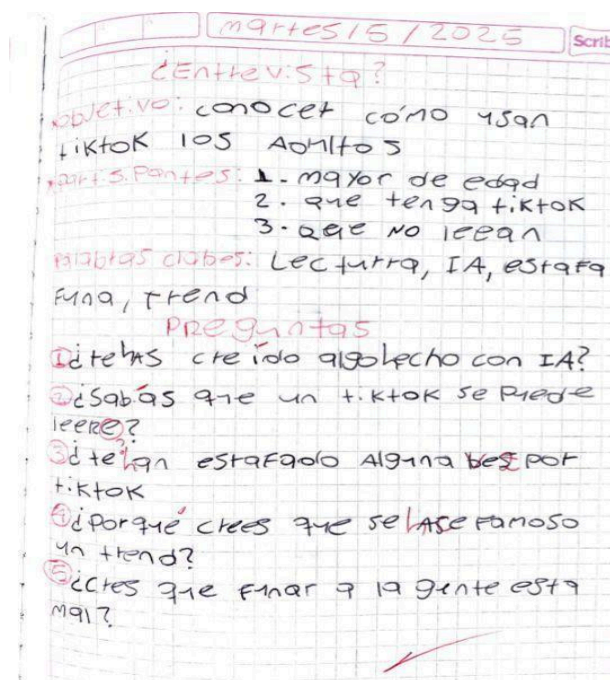 martes / 5 / 2025
Scrib
¿Entrevista?
objetivo: conocer cómo usan
tiktok los Adultos
partisipantes: 1. mayor de edad
2. que tenga tiktok
3. que NO leean
palabras clabes: Lecturra, IA, estafa
funa, trend
PREguntas
① ¿tehas creído algo hecho con IA?
② ¿Sabías que un tiktok se puede
leere?
③ ¿tehan estafado Alguna vez por
tiktok
④ ¿porqué crees que se hAse famoso
un trend?
⑤ ¿cres que funar a la gente esta
mal?